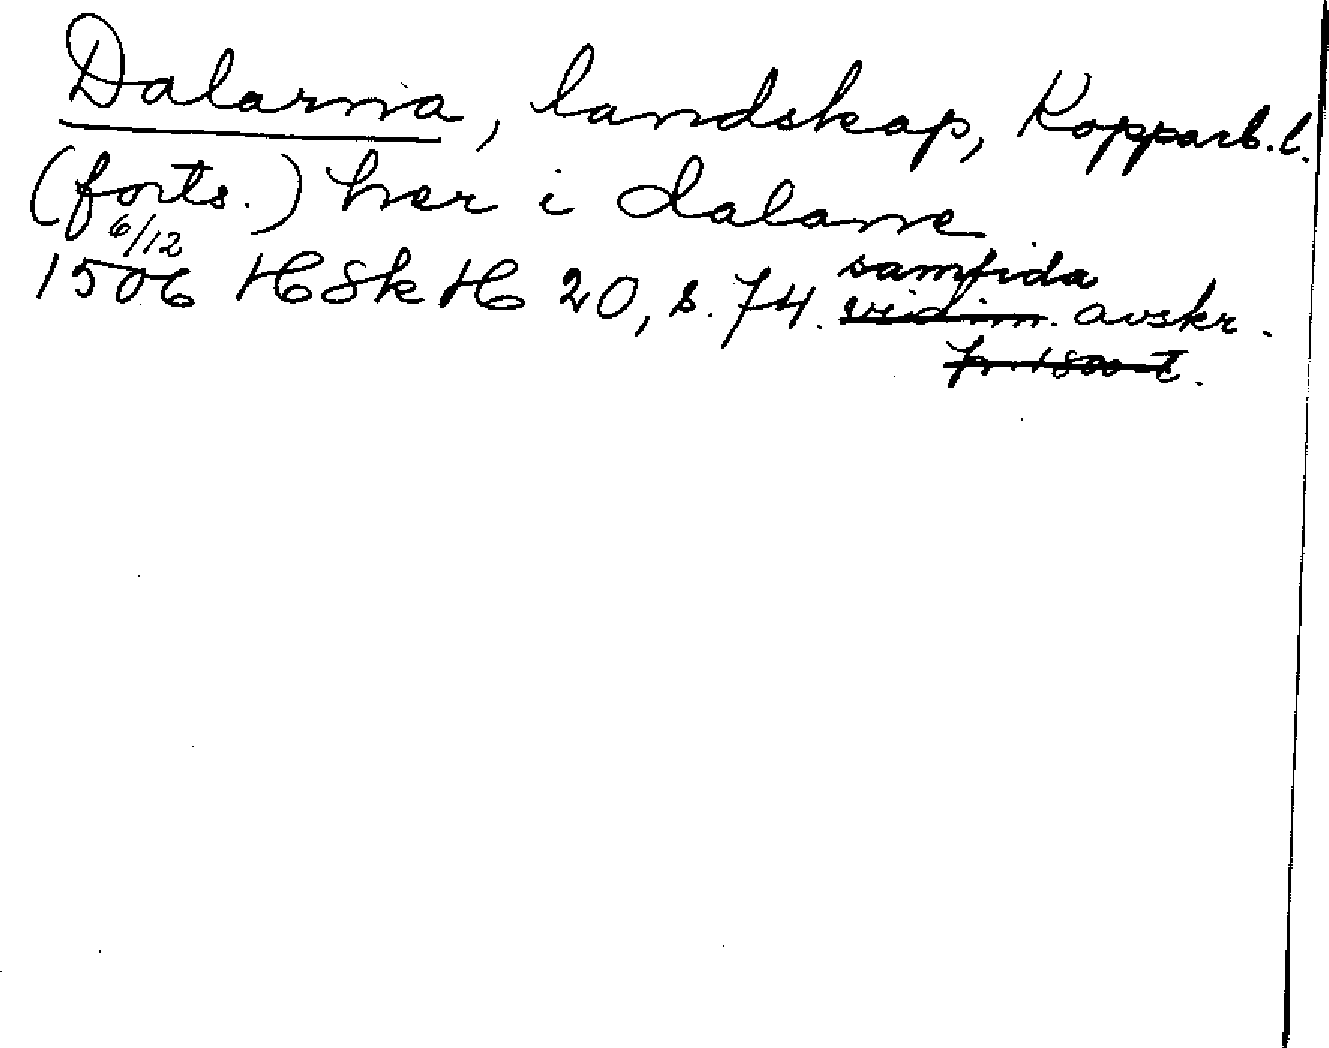 Dalarna, landskap, Kopparb. l.
(forts.) her i dalane
6/12
1506 HSkH 20, s. 74. samtida
vidim. avskr.
fr. 1800-t.